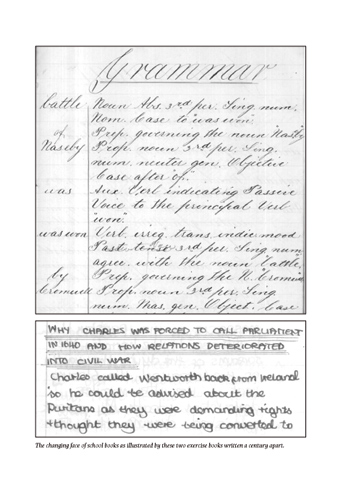 Grammar
battle Noun Abs. 3rd per. Sing. num.
Nom. Case to "was won".
of Prep. governing the noun Naseby
Naseby Prop. noun 3rd per. Sing.
num. neuter gen. Objective
Case after "of".
was Aux. Verb indicating Passive
Voice to the principal Verb
"won".
was won Verb. irreg. trans. indic. mood
Past tense 3rd per. Sing. num
agree. with the noun battle.
by Prep. governing the N. Cromwell
Cromwell Prop. noun 3rd per. Sing.
num. Mas. gen. Object. Case
WHY CHARLES WAS FORCED TO CALL PARLIAMENT
IN 1640 AND HOW RELATIONS DETERIORATED
INTO CIVIL WAR
Charles called Wentworth back from Ireland
so he could be advised about the
Puritans as they were demanding rights
+ thought they were being converted to
The changing face of school books as illustrated by these two exercise books written a century apart.